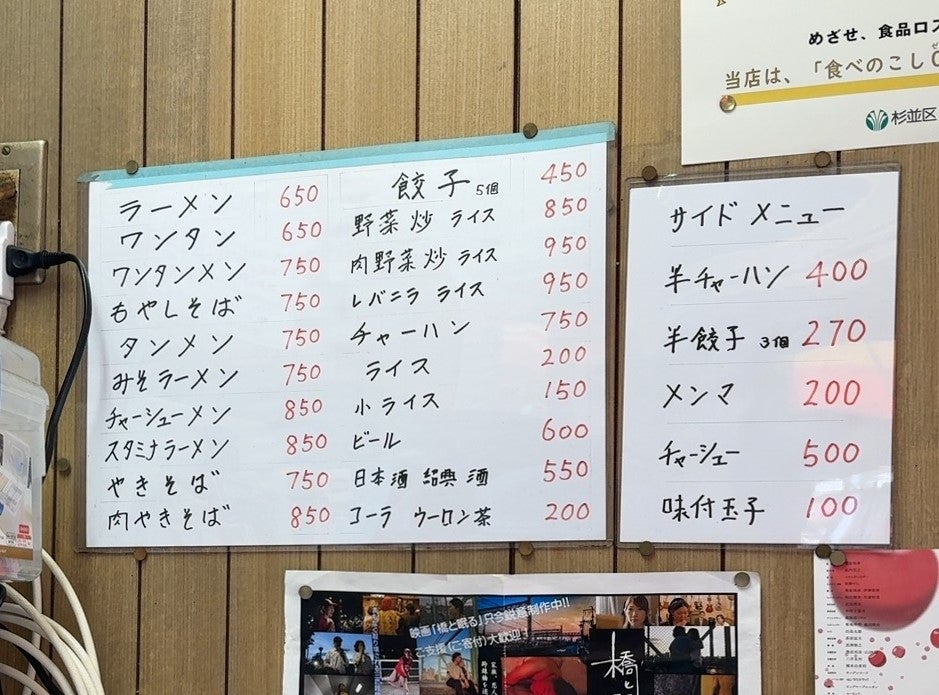 めざせ、食品ロス
当店は、「食べのこし0
杉並区
ラーメン 650
ワンタン 650
ワンタンメン 750
もやしそば 750
タンメン 750
みそラーメン 750
チャーシューメン 850
スタミナラーメン 850
やきそば 750
肉やきそば 850
餃子 5個 450
野菜炒 ライス 850
肉野菜炒 ライス 950
レバニラ ライス 950
チャーハン 750
ライス 200
小ライス 150
ビール 600
日本酒 紹興酒 550
コーラ ウーロン茶 200
サイドメニュー
半チャーハン 400
半餃子 3個 270
メンマ 200
チャーシュー 500
味付玉子 100
映画「橋と眠る」只今鋭意制作中!!
ご支援(ご寄付)大歓迎!
橋と